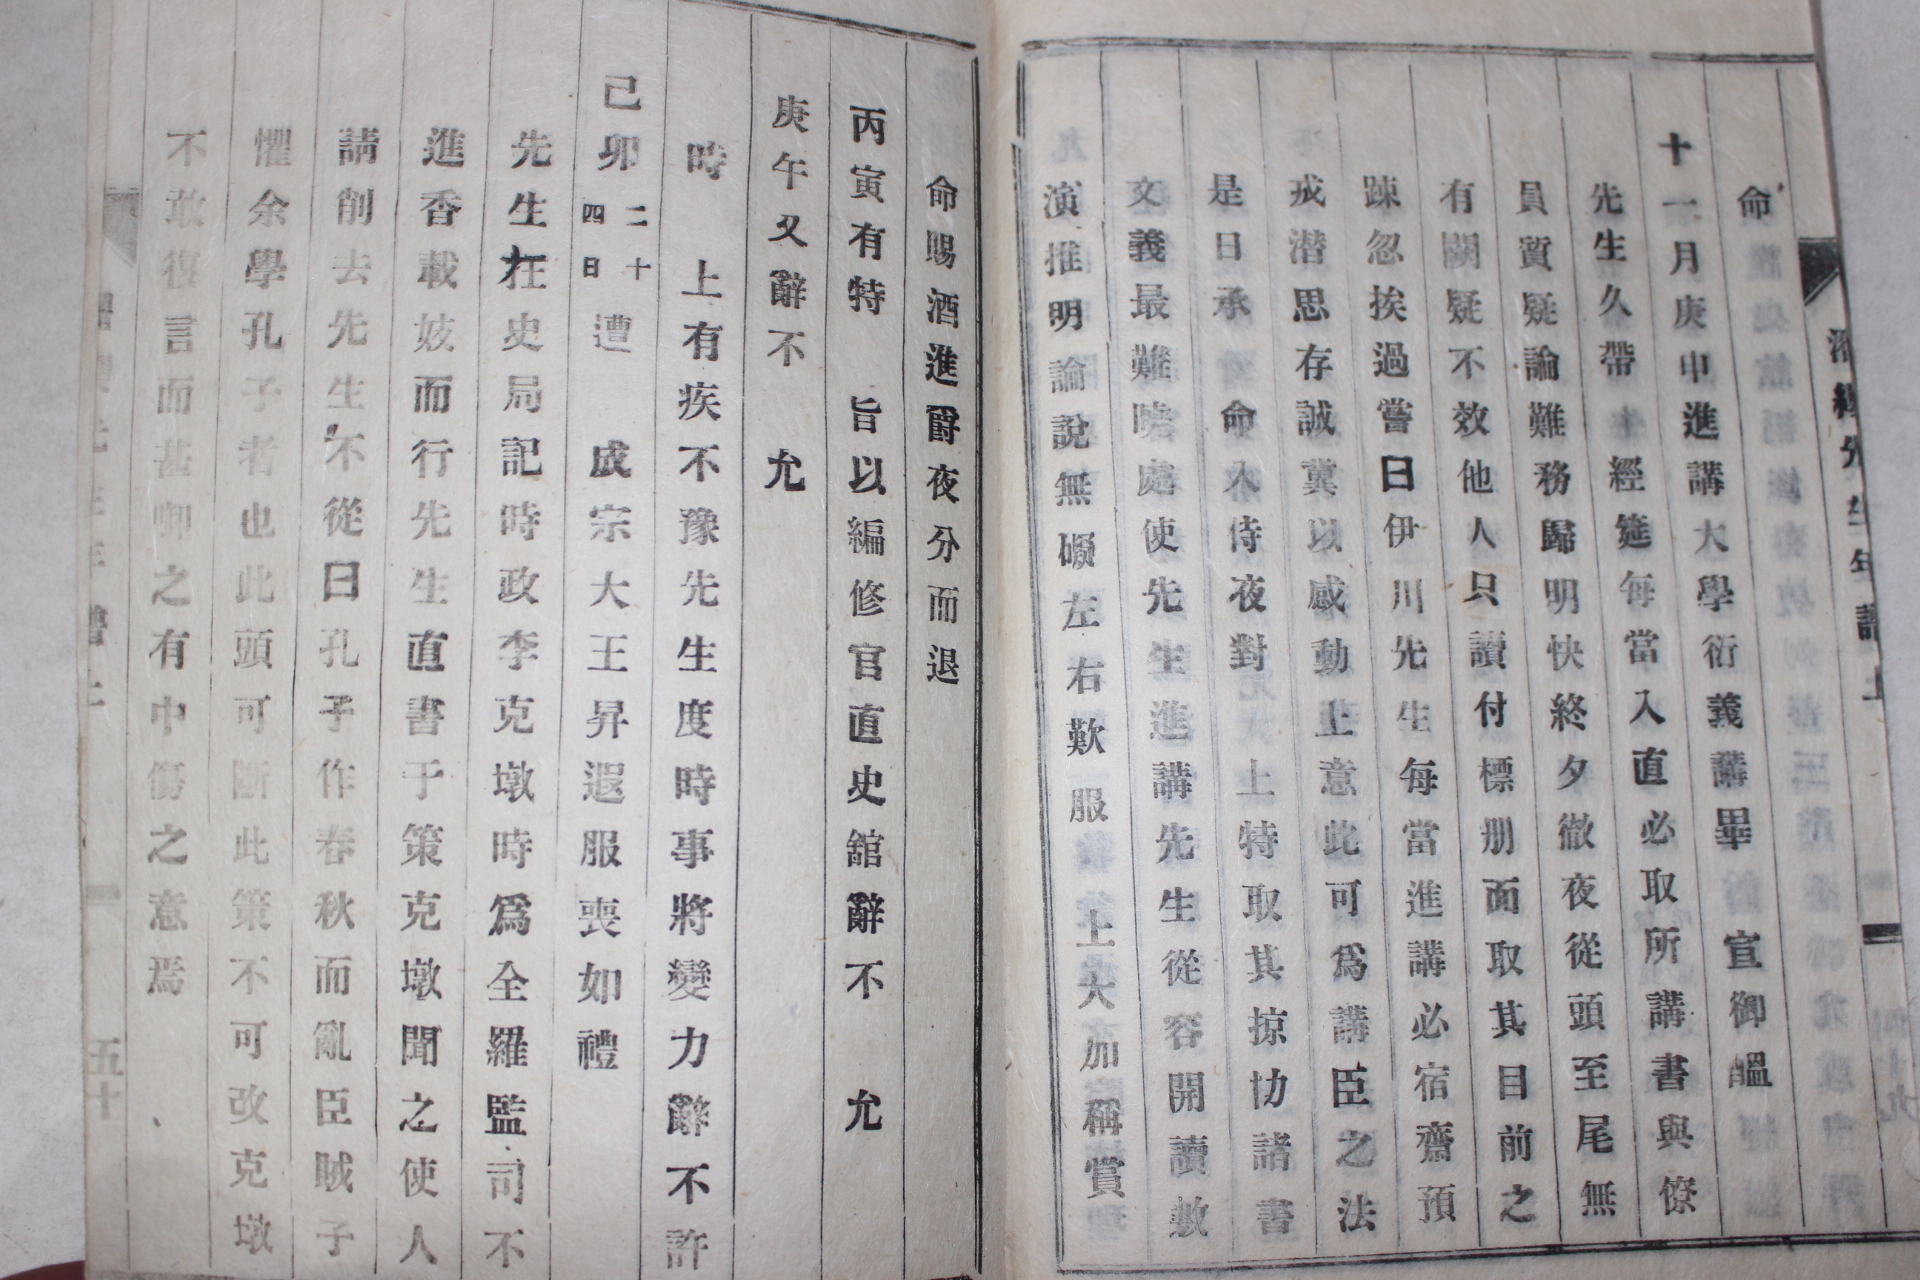 命
十一月庚申進講大學衍義講畢　宣御醞
先生久帶經筵每當入直必取所講書與僚
員質疑論難務歸明快終夕徹夜從頭至尾無
有闕疑不效他人只讀付標册面取其目前之
踈忽挨過嘗曰伊川先生每當進講必宿齋預
戒潛思存誠冀以感動上意此可爲講臣之法
是日承　命入侍夜對　上特取其掠扐諸書
文義最難曉處使先生進講先生從容開讀敷
演推明論說無礙左右歎服　上大加稱賞
命賜酒進爵夜分而退
丙寅有特　旨以編修官直史館辭不　允
庚午又辭不　允
時　上有疾不豫先生度時事將變力辭不許
己卯二十四日遭　成宗大王昇遐服喪如禮
先生在史局記時政李克墩時爲全羅監司不
進香載妓而行先生直書于策克墩聞之使人
請削去先生不從曰孔子作春秋而亂臣賊子
懼余學孔子者也此頭可斷此策不可改克墩
不敢復言而甚㘅之有中傷之意焉
先生年譜上
五十